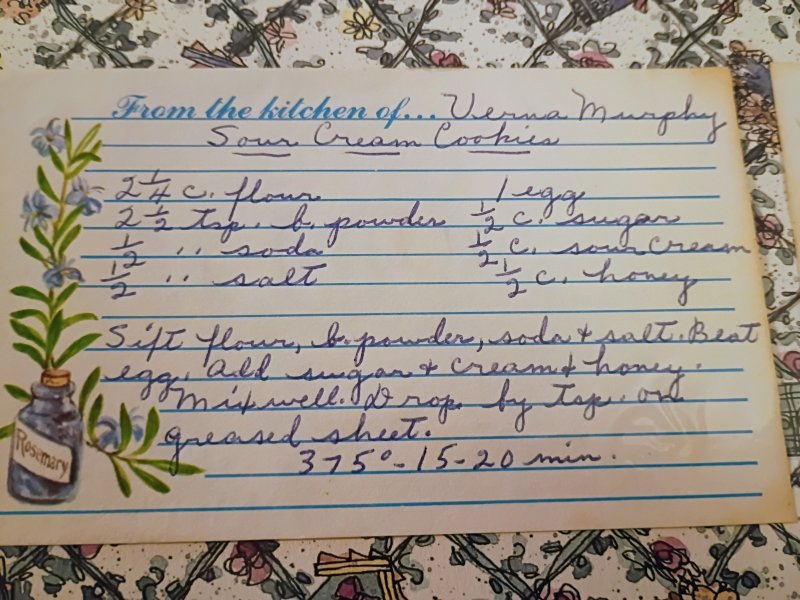 From the kitchen of... Verna Murphy
Sour Cream Cookies
2 1/4 c. flour
2 1/2 tsp. b. powder
1/2 '' soda
1/2 '' salt
1 egg
1/2 c. sugar
1/2 c. sour cream
1/2 c. honey
Sift flour, b. powder, soda + salt. Beat
egg, add sugar + cream + honey.
Mix well. Drop by tsp. on
greased sheet.
375° - 15-20 min.
Rosemary